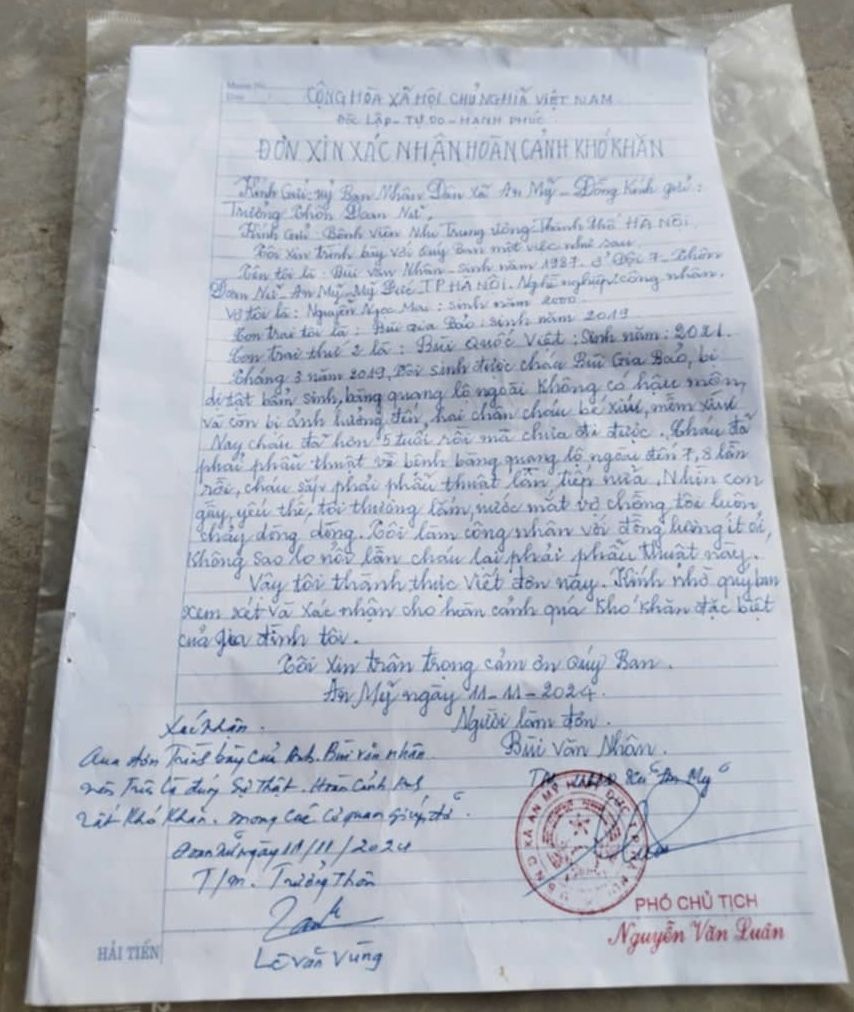 CỘNG HÒA XÃ HỘI CHỦ NGHĨA VIỆT NAM
ĐỘC LẬP - TỰ DO - HẠNH PHÚC
ĐƠN XIN XÁC NHẬN HOÀN CẢNH KHÓ KHĂN
Kính Gửi: Uỷ Ban Nhân Dân Xã An Mỹ - Đồng kính gửi:
Trưởng thôn Đoan Nữ,
Kính Gửi: Bệnh viện Nhi Trung ương Thành Phố HÀ NỘI
Tôi xin trình bày với Quý Ban một việc như sau
Tên tôi là: Bùi Văn Nhân - Sinh năm 1987. ở Đội 7 - Thôn
Đoan Nữ - An Mỹ - Mỹ Đức TP HÀ NỘI. Nghề nghiệp: công nhân.
Vợ tôi là: Nguyễn Ngọc Mai: sinh năm 2000
Con trai tôi là: Bùi Gia Bảo: sinh năm 2019
Con trai thứ 2 là: Bùi Quốc Việt: Sinh năm: 2021.
Tháng 3 năm 2019, Tôi sinh được cháu Bùi Gia Bảo, bị
dị tật bẩm sinh, bàng quang lộ ngoài không có hậu môn,
và còn bị ảnh hưởng đến, hai chân cháu bé xíu, mềm xìu
Nay cháu đã hơn 5 tuổi rồi mà chưa đi được. Cháu đã
phải phẫu thuật về bệnh bàng quang lộ ngoài đến 7, 8 lần
rồi, cháu sắp phải phẫu thuật lần tiếp nữa. Nhìn con
gầy, yếu thế, tôi thương lắm, nước mắt vợ chồng tôi luôn
chảy dòng dòng. Tôi làm công nhân với đồng lương ít ỏi,
không sao lo nổi lần cháu lại phải phẫu thuật này.
Vậy tôi thành thực viết đơn này. Kính nhờ quý ban
xem xét và xác nhận cho hoàn cảnh quá khó khăn đặc biệt
của gia đình tôi.
Tôi xin trân trọng cảm ơn Quý Ban.
An Mỹ ngày 11-11-2024.
Người làm đơn.
Bùi Văn Nhân.
Xác nhận.
Qua đơn Trình bày của Anh. Bùi văn nhân
nên Trên là đúng Sự Thật. Hoàn Cảnh Anh
rất Khó Khăn. mong các Cơ quan giúp đỡ.
Đoan Nữ ngày 11/11/2024
T/m. Trưởng Thôn
Lê Văn Vùng
TM UBND Xã An Mỹ
PHÓ CHỦ TỊCH
Nguyễn Văn Luân
HẢI TIẾN